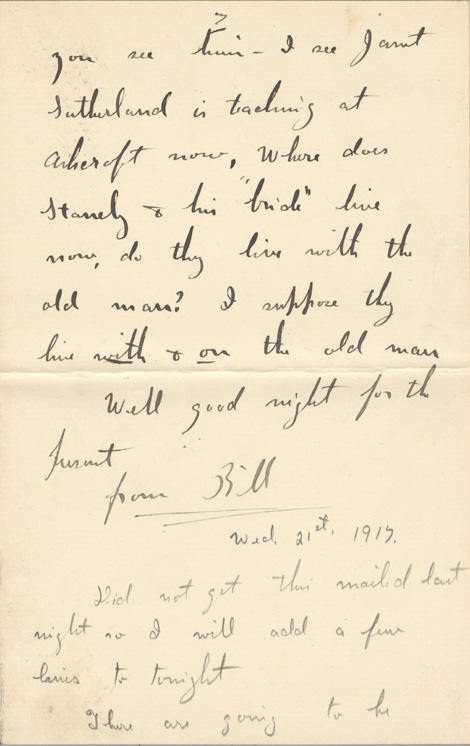 7
you see him - I see Janet
Sutherland is teaching at
Ashcroft now, Where does
Stanely & his "bride" live
now, do they live with the
old man? I suppose they
live with & on the old man
Well good night for the
present
from Bill
Wed. 21st. 1917.
Did not get this mailed last
night so I will add a few
lines to tonight
There are going to be